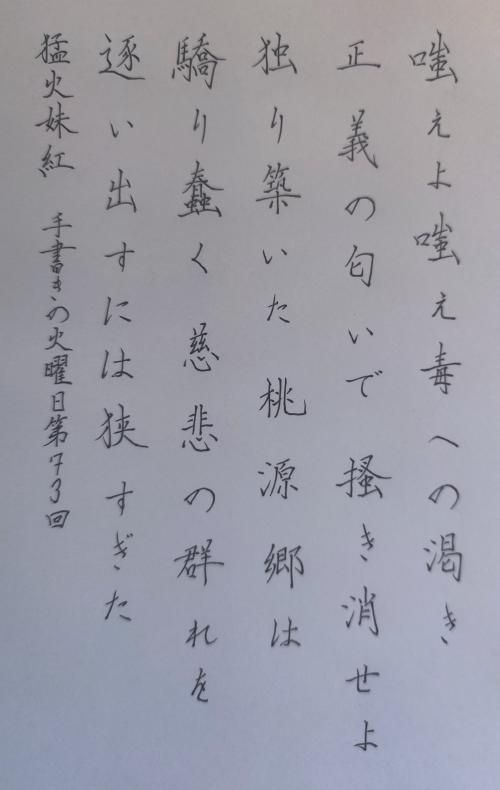 嗤えよ嗤え毒への渇き
正義の匂いで掻き消せよ
独り築いた桃源郷は
驕り蠢く慈悲の群れを
逐い出すには狭すぎた
猛火妹紅 手書きの火曜日第73回